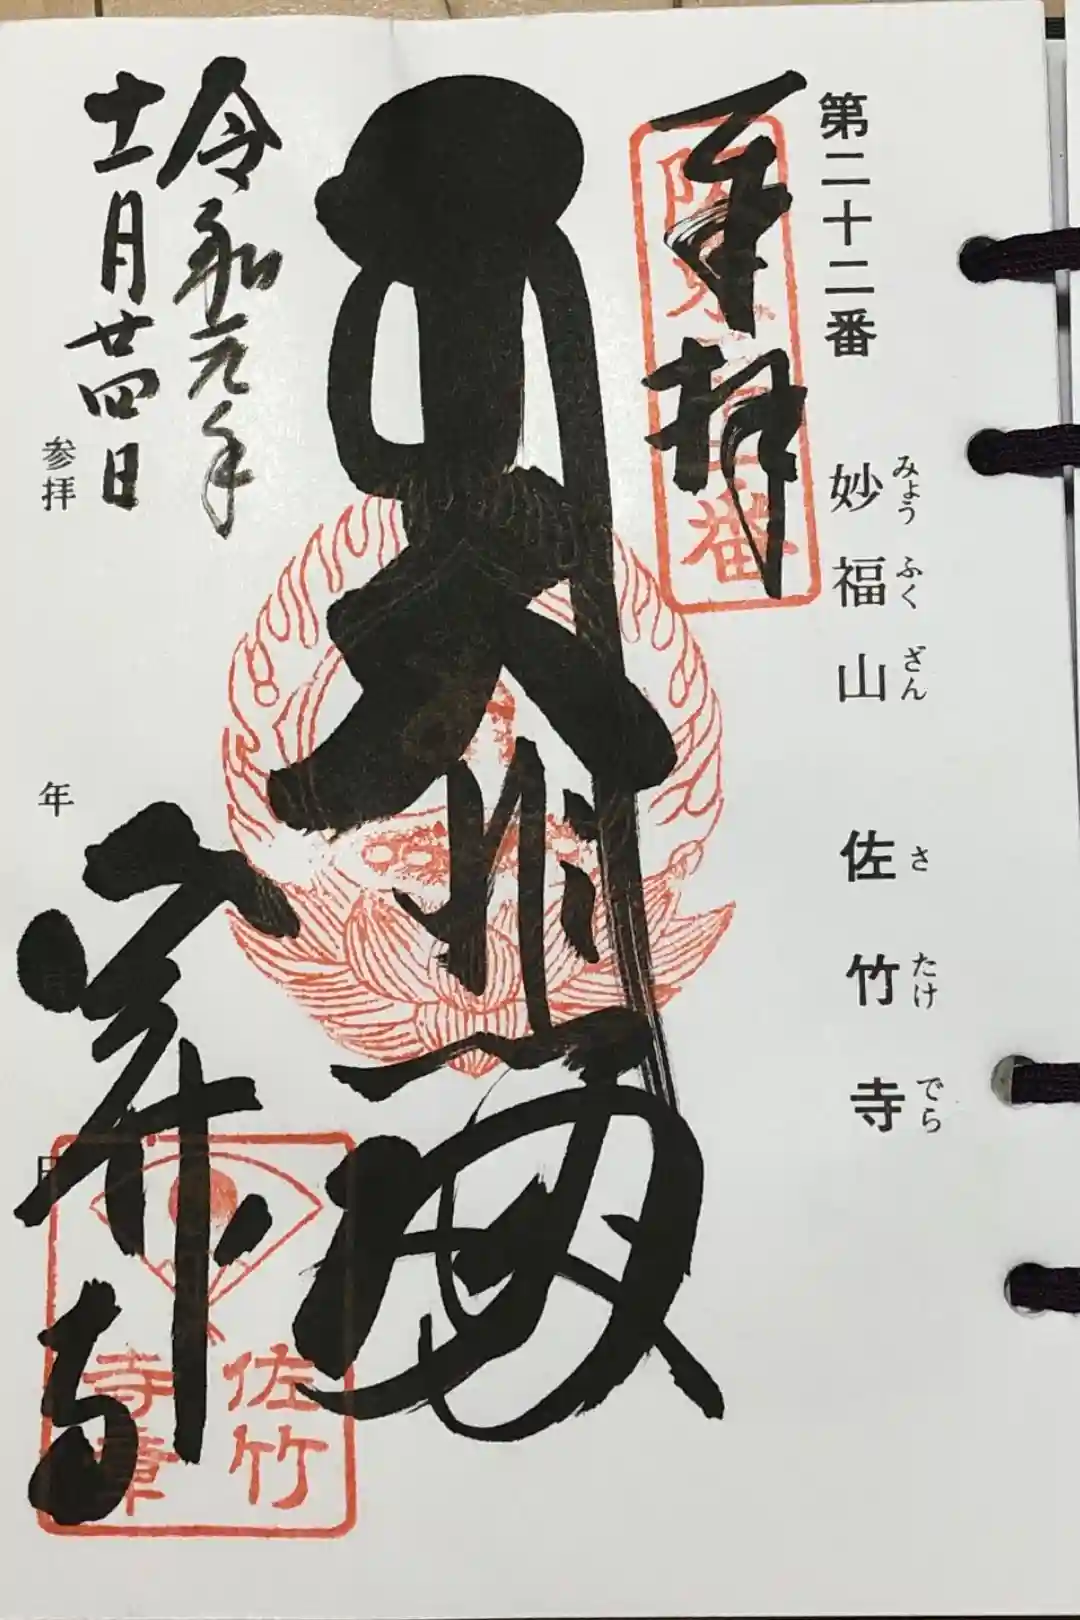 第二十二番 妙福山 佐竹寺
みょう ふく ざん さ たけ でら
奉拝
番
大悲殿
令和元年
十一月廿四日
参拝 年 月 日
佐竹寺
佐竹
寺章